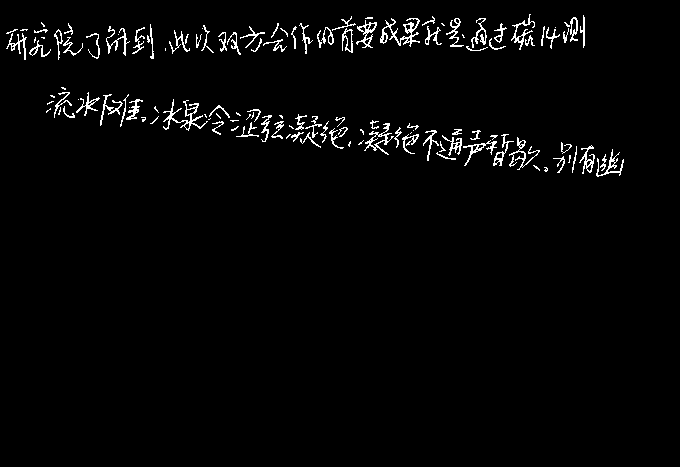 研究院了解到，此次双方合作的首要成果就是通过碳14测
流水下难。冰泉冷涩弦凝绝，凝绝不通声暂歇。别有幽